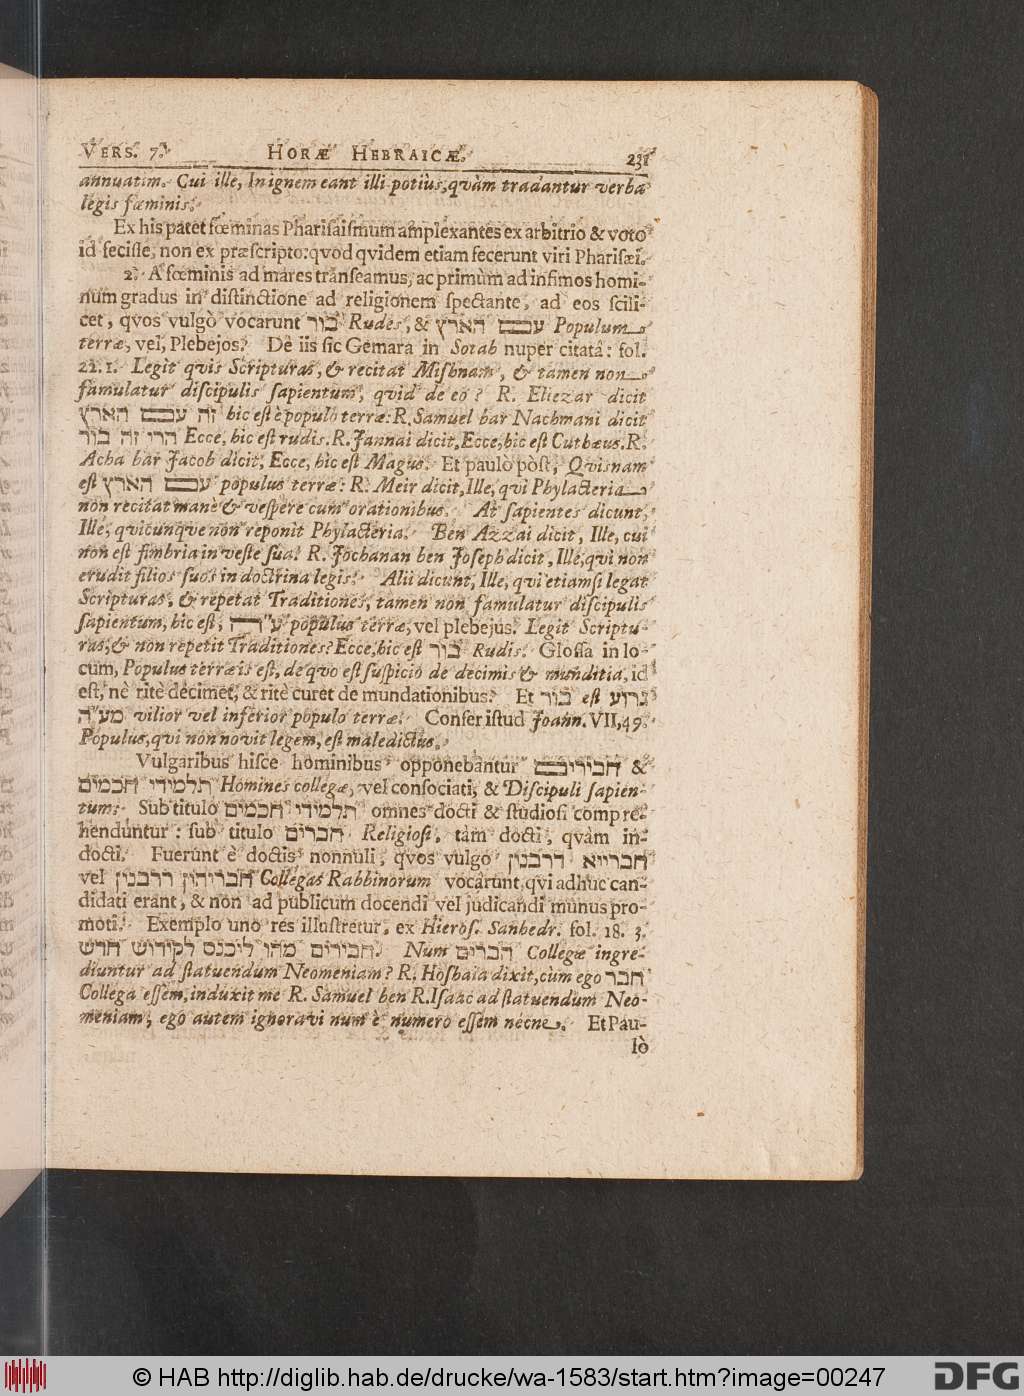 VERS. 7. HORÆ HEBRAICÆ. 231
annuatim. Cui ille, In ignem eant illi potiùs, qvàm tradantur verba
legis fœminis.
Ex his patet fœminas Pharisaismum amplexantes ex arbitrio & voto
id fecisse, non ex præscripto: qvod qvidem etiam fecerunt viri Pharisæi.
2. A fœminis ad mares transeamus, ac primùm ad infimos homi-
num gradus in distinctione ad religionem spectante, ad eos scili-
cet, qvos vulgò vocarunt בור Rudes, & עם הארץ Populum
terræ, vel, Plebejos. De iis sic Gemara in Sotah nuper citatâ: fol.
22. 1. Legit qvis Scripturas, & recitat Mishnam, & tamen non
famulatur discipulis sapientum, qvid de eo? R. Eliezar dicit
זה עם הארץ hic est è populo terræ: R. Samuel bar Nachmani dicit
הרי זה בור Ecce, hic est rudis. R. Jannai dicit, Ecce, hic est Cuthæus. R.
Acha bar Jacob dicit, Ecce, hic est Magus. Et paulò pòst, Qvisnam
est עם הארץ populus terræ: R. Meir dicit, Ille, qvi Phylacteria
non recitat mane & vespere cum orationibus. At sapientes dicunt,
Ille, qvicunqve non reponit Phylacteria. Ben Azzai dicit, Ille, cui
non est fimbria in veste sua. R. Jochanan ben Joseph dicit, Ille, qvi non
erudit filios suos in doctrina legis. Alii dicunt, Ille, qvi etiamsi legat
Scripturas, & repetat Traditiones, tamen non famulatur discipulis
sapientum, hic est, ע״ה populus terræ, vel plebejus. Legit Scriptu-
ras, & non repetit Traditiones? Ecce, hic est בור Rudis. Glossa in lo-
cum, Populus terræ is est, de qvo est suspicio de decimis & munditia, id
est, nè ritè decimet, & ritè curet de mundationibus. Et בור est גרוע
מע״ה vilior vel inferior populo terræ. Confer istud Joann. VII, 49.
Populus, qvi non novit legem, est maledictus.
Vulgaribus hisce hominibus opponebantur חבירים &
תלמידי חכמים Homines collegæ, vel consociati, & Discipuli sapien-
tum. Sub titulo תלמידי חכמים omnes docti & studiosi compre-
henduntur: sub titulo חברים Religiosi, tàm docti, qvàm in-
docti. Fuerunt è doctis nonnuli, qvos vulgò חברייא דרבנין
vel חבריהון דרבנין Collegas Rabbinorum vocarunt, qvi adhuc can-
didati erant, & non ad publicum docendi vel judicandi munus pro-
moti. Exemplo uno res illustretur, ex Hieros. Sanhedr. fol. 18. 3.
חבירים מהו ליכנס לקידוש חדש Num חברים Collegæ ingre-
diuntur ad statuendum Neomeniam? R. Hoshaia dixit, cùm ego חבר
Collega essem, induxit me R. Samuel ben R. Isaac ad statuendum Neo-
meniam, ego autem ignoravi num è numero essem necne. Et Pau-
lò
© HAB http://diglib.hab.de/drucke/wa-1583/start.htm?image=00247
DFG